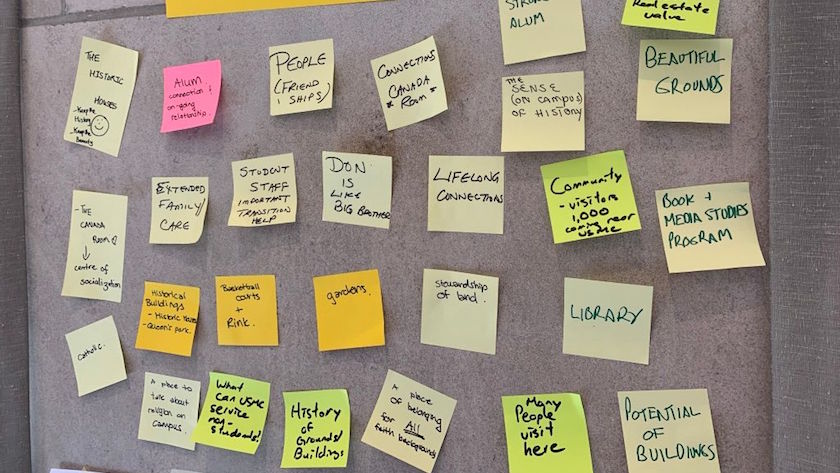 STRONG
ALUM
Real estate
value
THE
HISTORIC
HOUSES
-Keep the
History
-Keep the
Beauty
Alum
connection &
on-going
relationship.
PEOPLE
(FRIEND
SHIPS)
CONNECTIONS
CANADA
"ROOM"
THE
SENSE
(ON CAMPUS)
OF HISTORY
BEAUTIFUL
GROUNDS
- THE
CANADA
ROOM
↓
centre of
socialization
EXTENDED
FAMILY/
CARE
STUDENT
STAFF
IMPORTANT
TRANSITION
HELP
DON
IS
LIKE
BIG BROTHER
LIFELONG
CONNECTIONS
Community
- visitors
1,000
coming near
USMC
BOOK +
MEDIA STUDIES
PROGRAM
Historical
Buildings
- Historic Houses
- Queen's park.
Basketball
courts
+
Rink.
gardens.
stewardship
of land.
LIBRARY
Catholic.
A place to
talk about
religion on
campus.
What
can USMC
service
non-
students?
History
of
Grounds/
Buildings
A place
of belonging
for All
faith backgrounds
Many
People
visit
here
POTENTIAL
OF
BUILDINGS